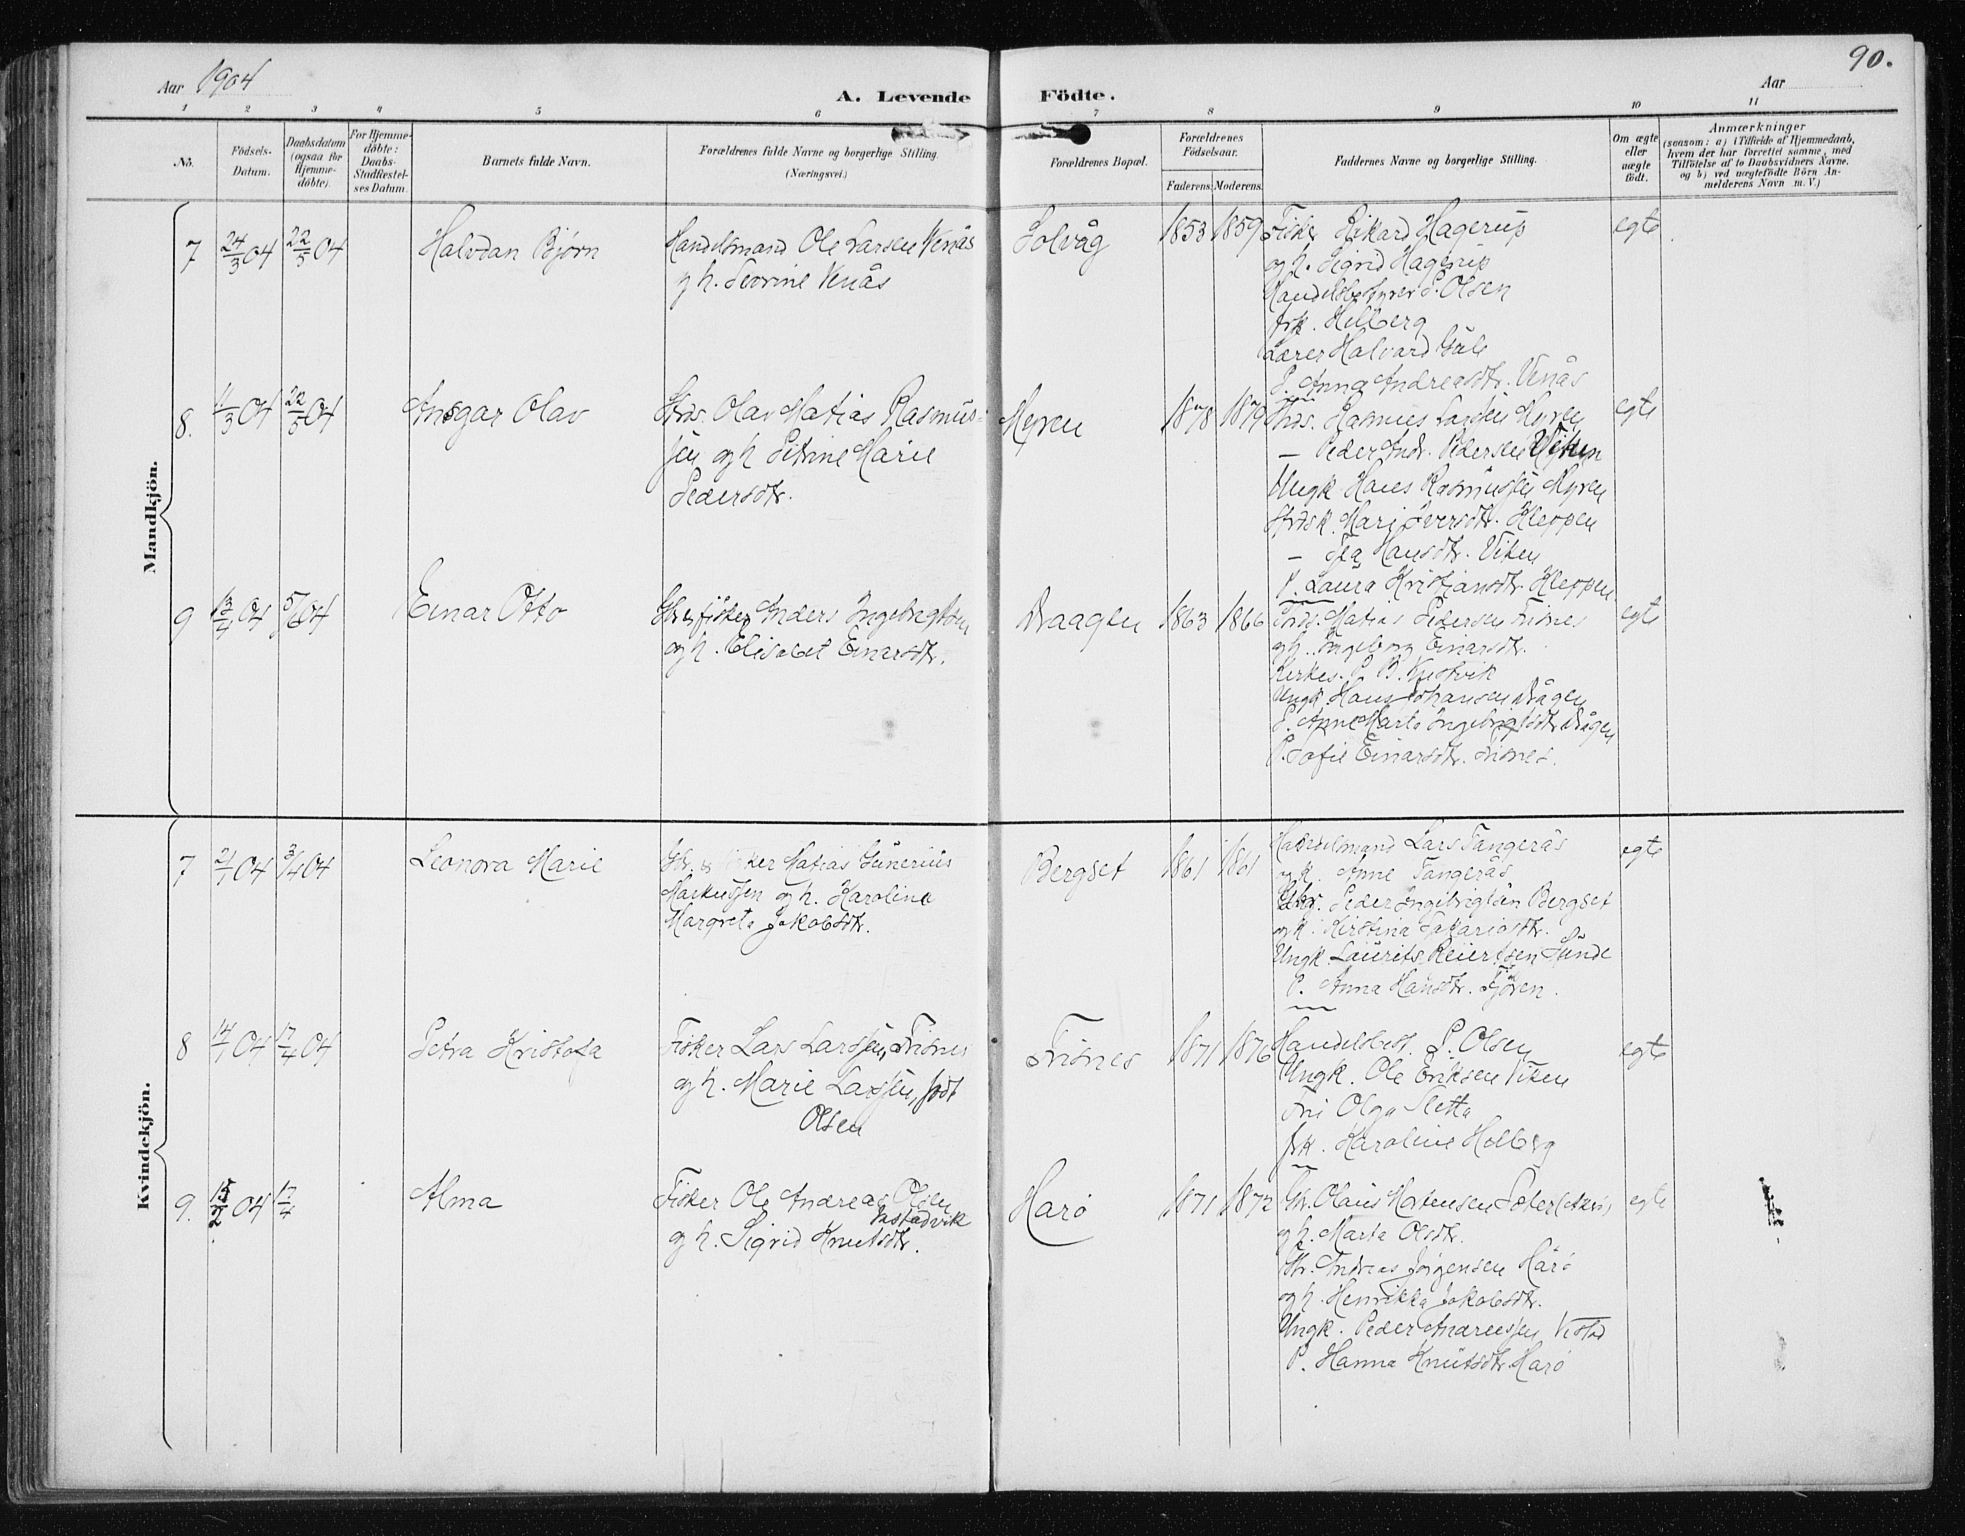 90.
Aar 1904
A. Levende Födte.
Aar
1 2 3 4 5 6 7 8 9 10 11
No.
Födsels-
Datum.
Daabsdatum
(ogsaa for
Hjemme-
döbte).
For Hjemme-
döbte:
Daabs-
Stadfæstel-
ses Datum.
Barnets fulde Navn.
Forældrenes fulde Navne og borgerlige Stilling.
(Næringsvei.)
Forældrenes Bopæl.
Forældrenes
Födselsaar.
Faderens. Moderens.
Faddernes Navne og borgerlige Stilling.
Om ægte
eller
uægte
födt.
Anmærkninger
(saasom: a) i Tilfælde af Hjemmedaab,
hvem der har forrettet samme, med
Tilföielse af to Daabsvidners Navne.
og b) ved uægtefödte Börn An-
melderens Navn m. V.)
Mandkjön.
7 24/3 04 22/5 04 Halvdan Bjørn
Handelsmand Ole Larsen Venås
og h. Severine Venås
Solvåg 1853 1859
Fisker Rikard Hagerup
og h. Sigrid Hagerup
Handelsbestyrer P. Olsen
frk. Holberg
Lærer Halvard
P. Anna Andreasdtr. Venås
egte
8. 11/3 04 22/5 04 Ansgar Olav
Strds. Olav Matias Rasmus-
sen og h Petrine Marie
Pedersdtr.
Myren 1878 1879
Strds. Rasmus Larssen Myren
— Peder Andr. Pedersen Viken
Ungk. Hans Rasmussen Myren
Strdsk. Mari Iversdtr. Kleppen
— Hansdtr. Viken
P. Laura Kristiansdtr. Kleppen
egte
9 13/4 04 5/6 04 Einar Otto
Gbr. & fisker Anders Ingebrigtsen
og h. Elisabet Einarsdtr.
Draagen 1863 1866
Matias Pedersen Frisnes
og h. Ingeborg Einarsdtr.
Kirkes. P. B.
Ungk. Hans Johansen Dågen
P. Anne Marta Ingebrigtsdtr. Dågen
P. Sofie Einarsdtr. Frisnes.
egte
Kvindekjön.
7 2/1 04 3/4 04 Leonora Marie
Gbr. & fisker Matias Gunerius
Markussen og h. Karoline
Margreta Jakobsdtr.
Bergset 1861 1861
Handelsmand Lars Tangerås
og h. Anne Tangerås
Gbr. Peder Ingebrigtsen Bergset
og h. Kirstina Sakariasdtr.
Ungk. Laurits Reiertsen Sunde
P. Anna Hansdtr. Fjøren.
egte
8 14/1 04 17/4 04 Petra Kristofa
Fisker Lars Larssen, Frisnes
og h. Marie Larssen, født
Olsen
Frisnes 1871 1876
Handelsbest. P. Olsen
Ungk. Ole Eriksen Viken
Fru Olga Sletta
frk. Karoline Holberg
egte
9. 15/2 04 17/4 Alma
Fisker Ole Andreas Olsen
Vastadvik
og h. Sigrid Knutsdtr.
Harø 1871 1872
Gbr. Olaus Mortensen Sæter (Akerø)
og h. Marta Olsdtr.
Gbr. Andreas Jørgensen Harø
og h. Henrikka Jakobsdtr.
Ungk. Peder Andreassen
P. Hanna Knutsdtr. Harø
egte